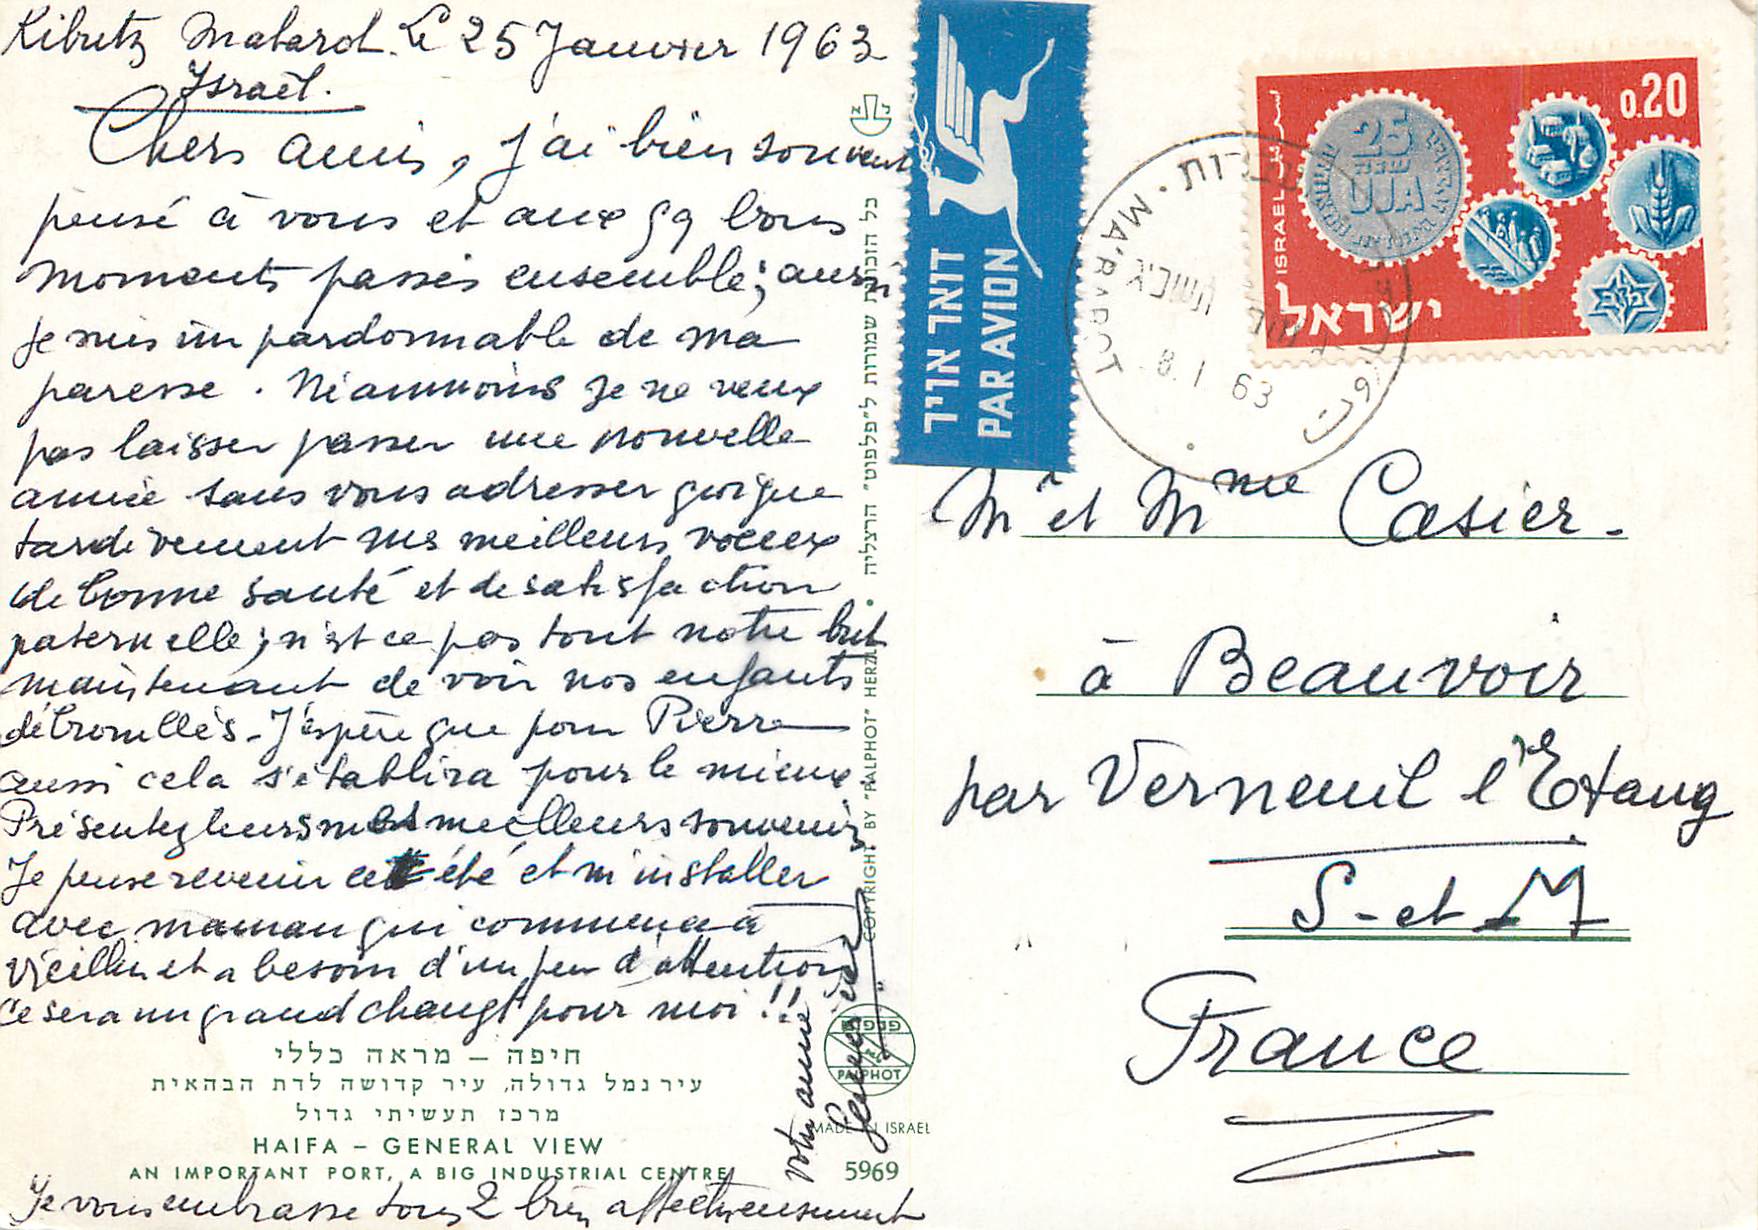 Kibutz Mabarot. Le 25 Janvier 1963
Israël.
Chers amis, j'ai bien souvent
pensé à vous et aux qq bons
moments passés ensemble; aussi
je suis impardonnable de ma
paresse. Néammoins je ne veux
pas laisser passer une nouvelle
année sans vous adresser quoique
tardivement mes meilleurs voeux
de bonne santé et de satisfaction
paternelle; n'est ce pas tout notre but
maintenant de voir nos enfants
débrouillés. J'espère que pour Pierre
aussi cela s'établira pour le mieux
Présentez leurs mes meilleurs souvenirs
Je pense revenir cet été et m'installer
avec maman qui commence à
vieillir et a besoin d'un peu d'attention
Ce sera un grand changt pour moi !!
Je vous embrasse tous 2 bien affectueusement
votre amie
חיפה – מראה כללי
עיר נמל גדולה, עיר קדושה לדת הבהאית
מרכז תעשיתי גדול
HAIFA – GENERAL VIEW
AN IMPORTANT PORT, A BIG INDUSTRIAL CENTRE
פלפוט
PALPHOT
MADE IN ISRAEL
5969
כל הזכויות שמורות ל״פלפוט״ הרצליה • COPYRIGHT BY "PALPHOT" HERZLIA
דואר אויר
PAR AVION
0.20
25
שנה
UJA
ISRAEL
ישראל
MA'BAROT
8. 1 63
Mr et Mme Casier.
à Beauvoir
par Verneuil l'Etang
S-et M
France